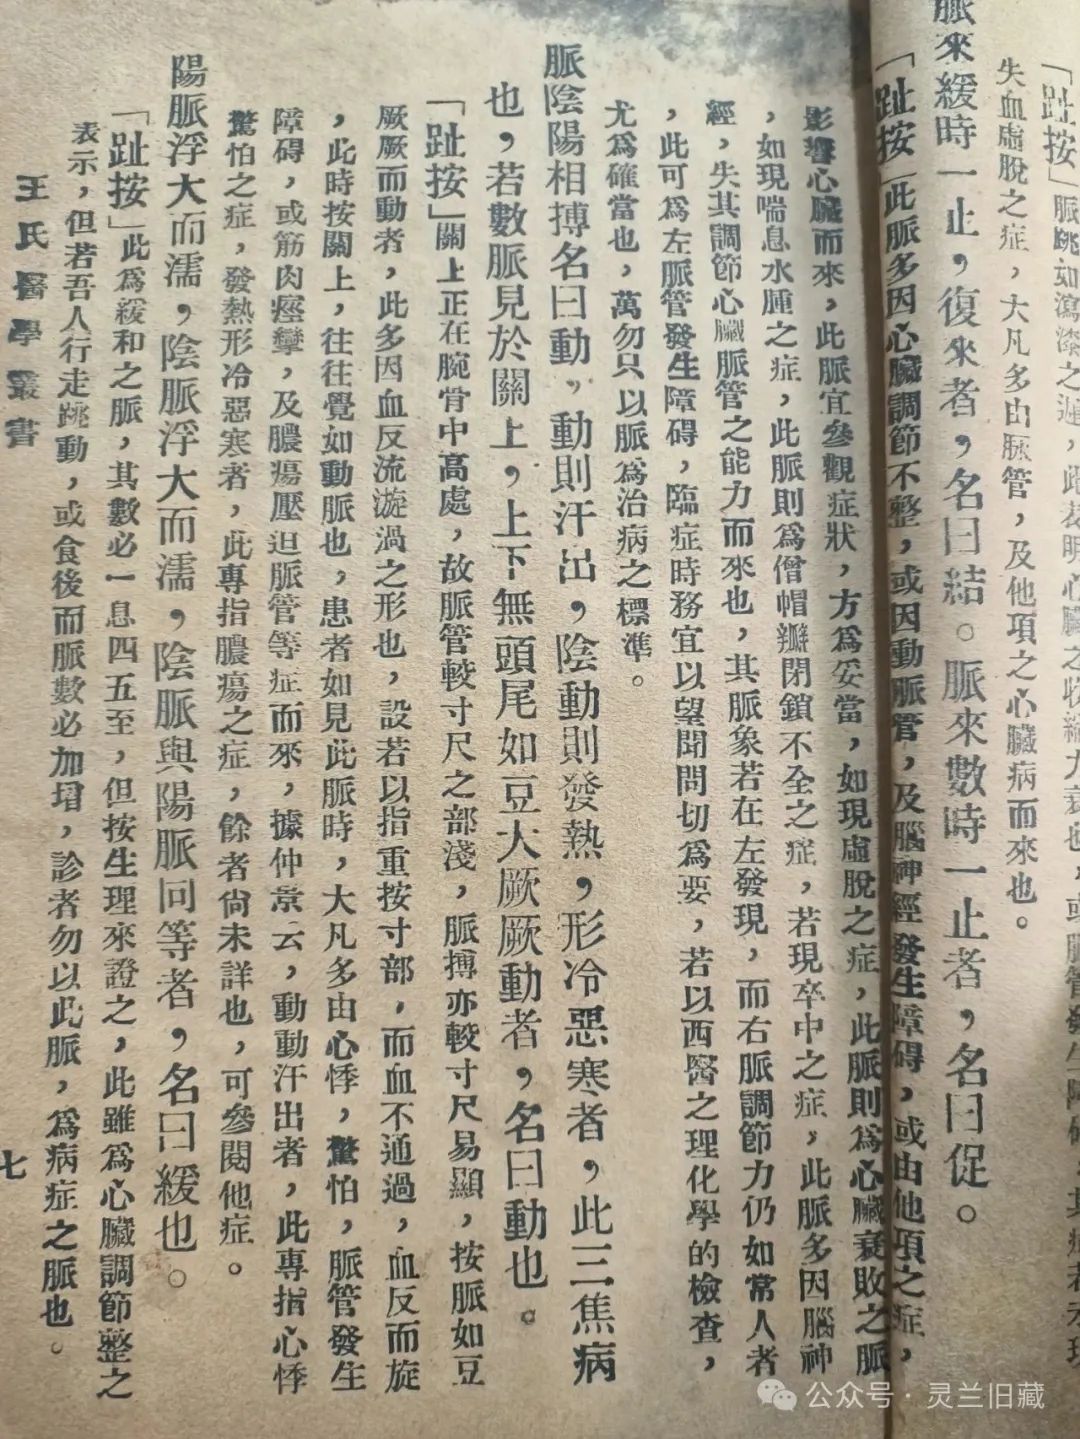 「趾按」脈跳如瀉漆之遲，此表明心臟之收縮力衰也，或脈管發生障碍，其病若未現
失血虛脫之症，大凡多由脈管，及他項之心臟病而來也。
脈來緩時一止，復來者，名曰結。脈來數時一止者，名曰促。
「趾按」此脈多因心臟調節不整，或因動脈管，及腦神經發生障碍，或由他項之症，
影響心臟而來，此脈宜參觀症狀，方為妥當，如現虛脫之症，此脈則為心臟衰敗之脈
，如現喘息水腫之症，此脈則為僧帽瓣閉鎖不全之症，若現卒中之症，此脈多因腦神
經，失其調節心臟脈管之能力而來也，其脈象若在左發現，而右脈調節力仍如常人者
，此可為左脈管發生障碍，臨症時務宜以望聞問切為要，若以西醫之理化學的檢查，
尤為確當也，萬勿只以脈為治病之標準。
脈陰陽相搏名曰動，動則汗出，陰動則發熱，形冷惡寒者，此三焦病
也，若數脈見於關上，上下無頭尾如豆大厥厥動者，名曰動也。
「趾按」關上正在腕骨中高處，故脈管較寸尺之部淺，脈搏亦較寸尺易顯，按脈如豆
厥厥而動者，此多因血反流漩渦之形也，設若以指重按寸部，而血不通過，血反而旋
，此時按關上，往往覺如動脈也，患者如見此脈時，大凡多由心悸，驚怕，脈管發生
障碍，或筋肉痙攣，及膿瘍壓迫脈管等症而來，據仲景云，動動汗出者，此專指心悸
驚怕之症，發熱形冷惡寒者，此專指膿瘍之症，餘者尙未詳也，可參閱他症。
陽脈浮大而濡，陰脈浮大而濡，陰脈與陽脈同等者，名曰緩也。
「趾按」此為緩和之脈，其數必一息四五至，但按生理來證之，此雖為心臟調節整之
表示，但若吾人行走跳動，或食後而脈數必加增，診者勿以此脈，為病症之脈也。
王氏醫學叢書
七
公众号·灵兰旧藏